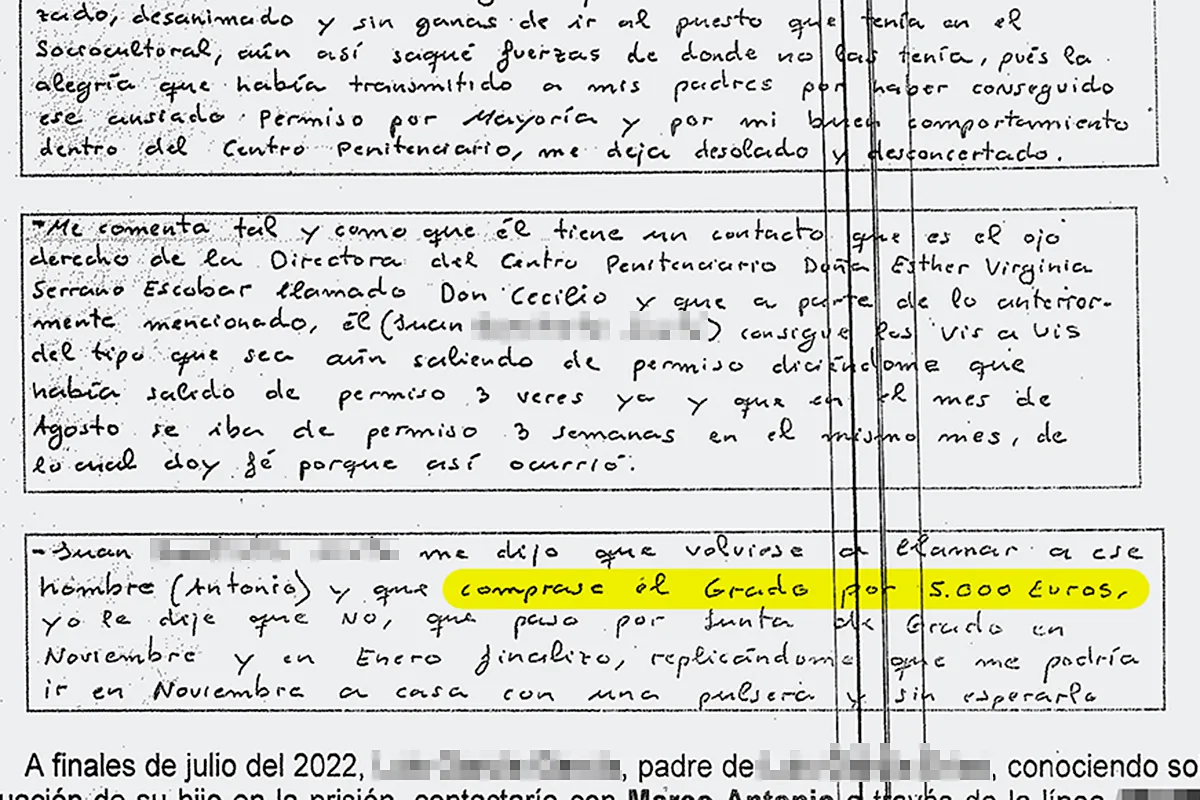 zado, desanimado y sin ganas de ir al puesto que tenía en el
Sociocultoral, aún así saqué fuerzas de donde no las tenía, pués la
alegría que había transmitido a mis padres por haber conseguido
ese ansiado Permiso por Mayoría y por mi buen comportamiento
dentro del Centro Penitenciario, me deja desolado y desconcertado.
-Me comenta tal y como que él tiene un contacto que es el ojo
derecho de la Directora del Centro Penitenciario Doña Esther Virginia
Serrano Escobar llamado Don Cecilio y que a parte de lo anterior-
mente mencionado, él (Juan ) consigue los Vis a Vis
del tipo que sea aún saliendo de permiso diciéndome que
había salido de permiso 3 veces ya y que en el mes de
Agosto se iba de permiso 3 semanas en el mismo mes, de
lo cual doy fé porque así ocurrió.
-Juan me dijo que volviese a llamar a ese
hombre (Antonio) y que comprase el Grado por 5.000 Euros,
yo le dije que NO, que paso por Junta de Grado en
Noviembre y en Enero finalizo, replicándome que me podría
ir en Noviembre a casa con una pulsera y sin esperarlo
A finales de julio del 2022, , padre de , conociendo so
uación de su hijo en la prisión, contactaría con Marco Antonio a través de la línea